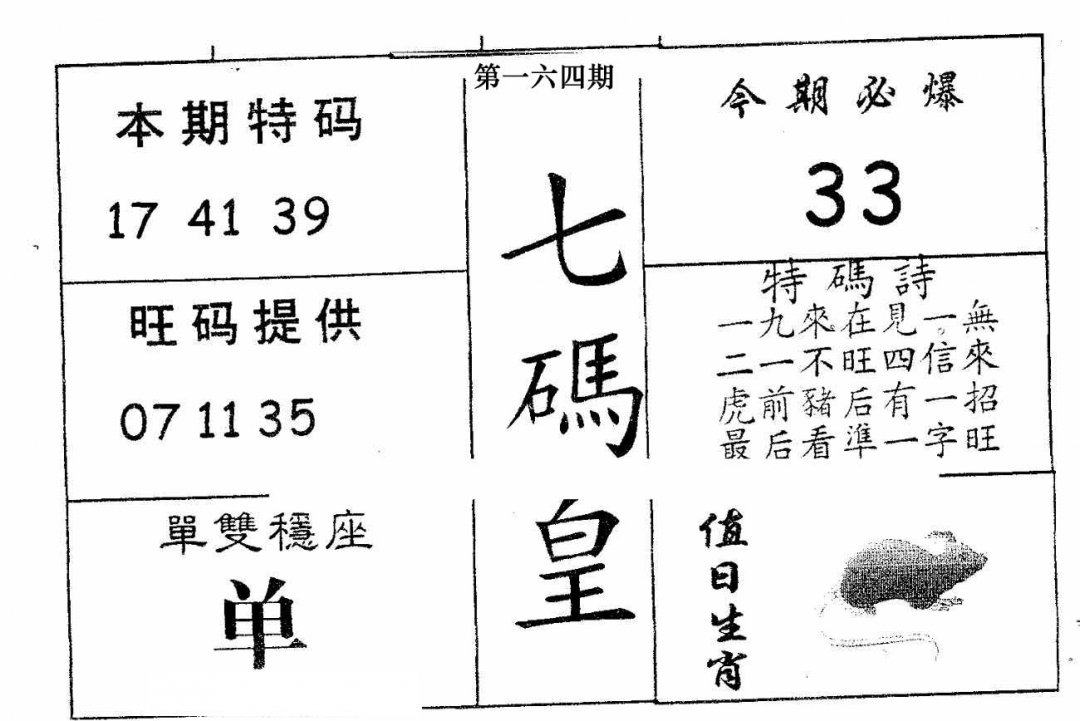 第一六四期
七碼皇
本期特码
17 41 39
旺码提供
07 11 35
單雙穩座
单
今期必爆
33
特碼詩
一九來在見一無
二一不旺四信來
虎前豬后有一招
最后看準一字旺
值日生肖